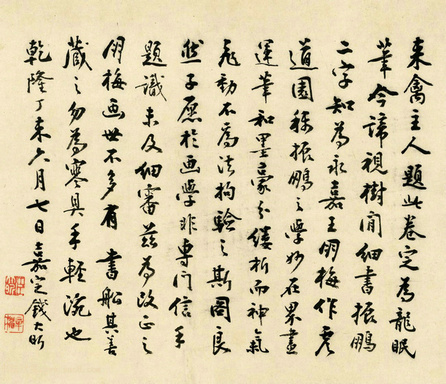 來禽主人題此卷定為龍眠
筆今諦視樹間細書振鵬
二字知為永嘉王朋梅作虞
道園稱振鵬之學妙在界畫
運筆和墨豪分縷析而神氣
飛動不為法拘驗之斯圖良
然予愿於畫學非專門信手
題識未及細審茲為改正之
朋梅画世不多有書船其善
藏之勿為寒具手輕涴也
乾隆丁未六月七日嘉定錢大昕